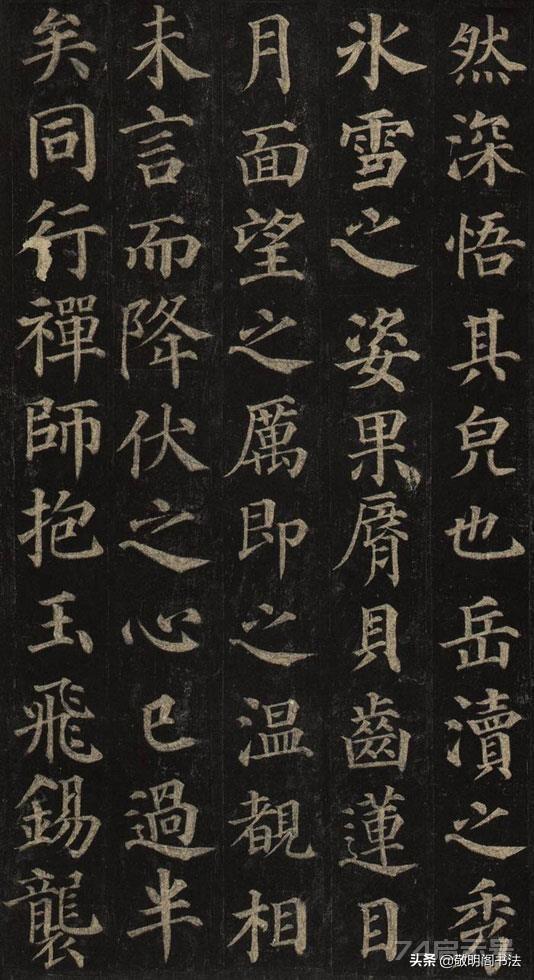 然深悟其皃也岳瀆之秀
氷雪之姿果脣貝齒蓮目
月面望之厲即之温覩相
未言而降伏之心已過半
矣同行禪師抱玉飛錫襲
头条 @敬明阁书法